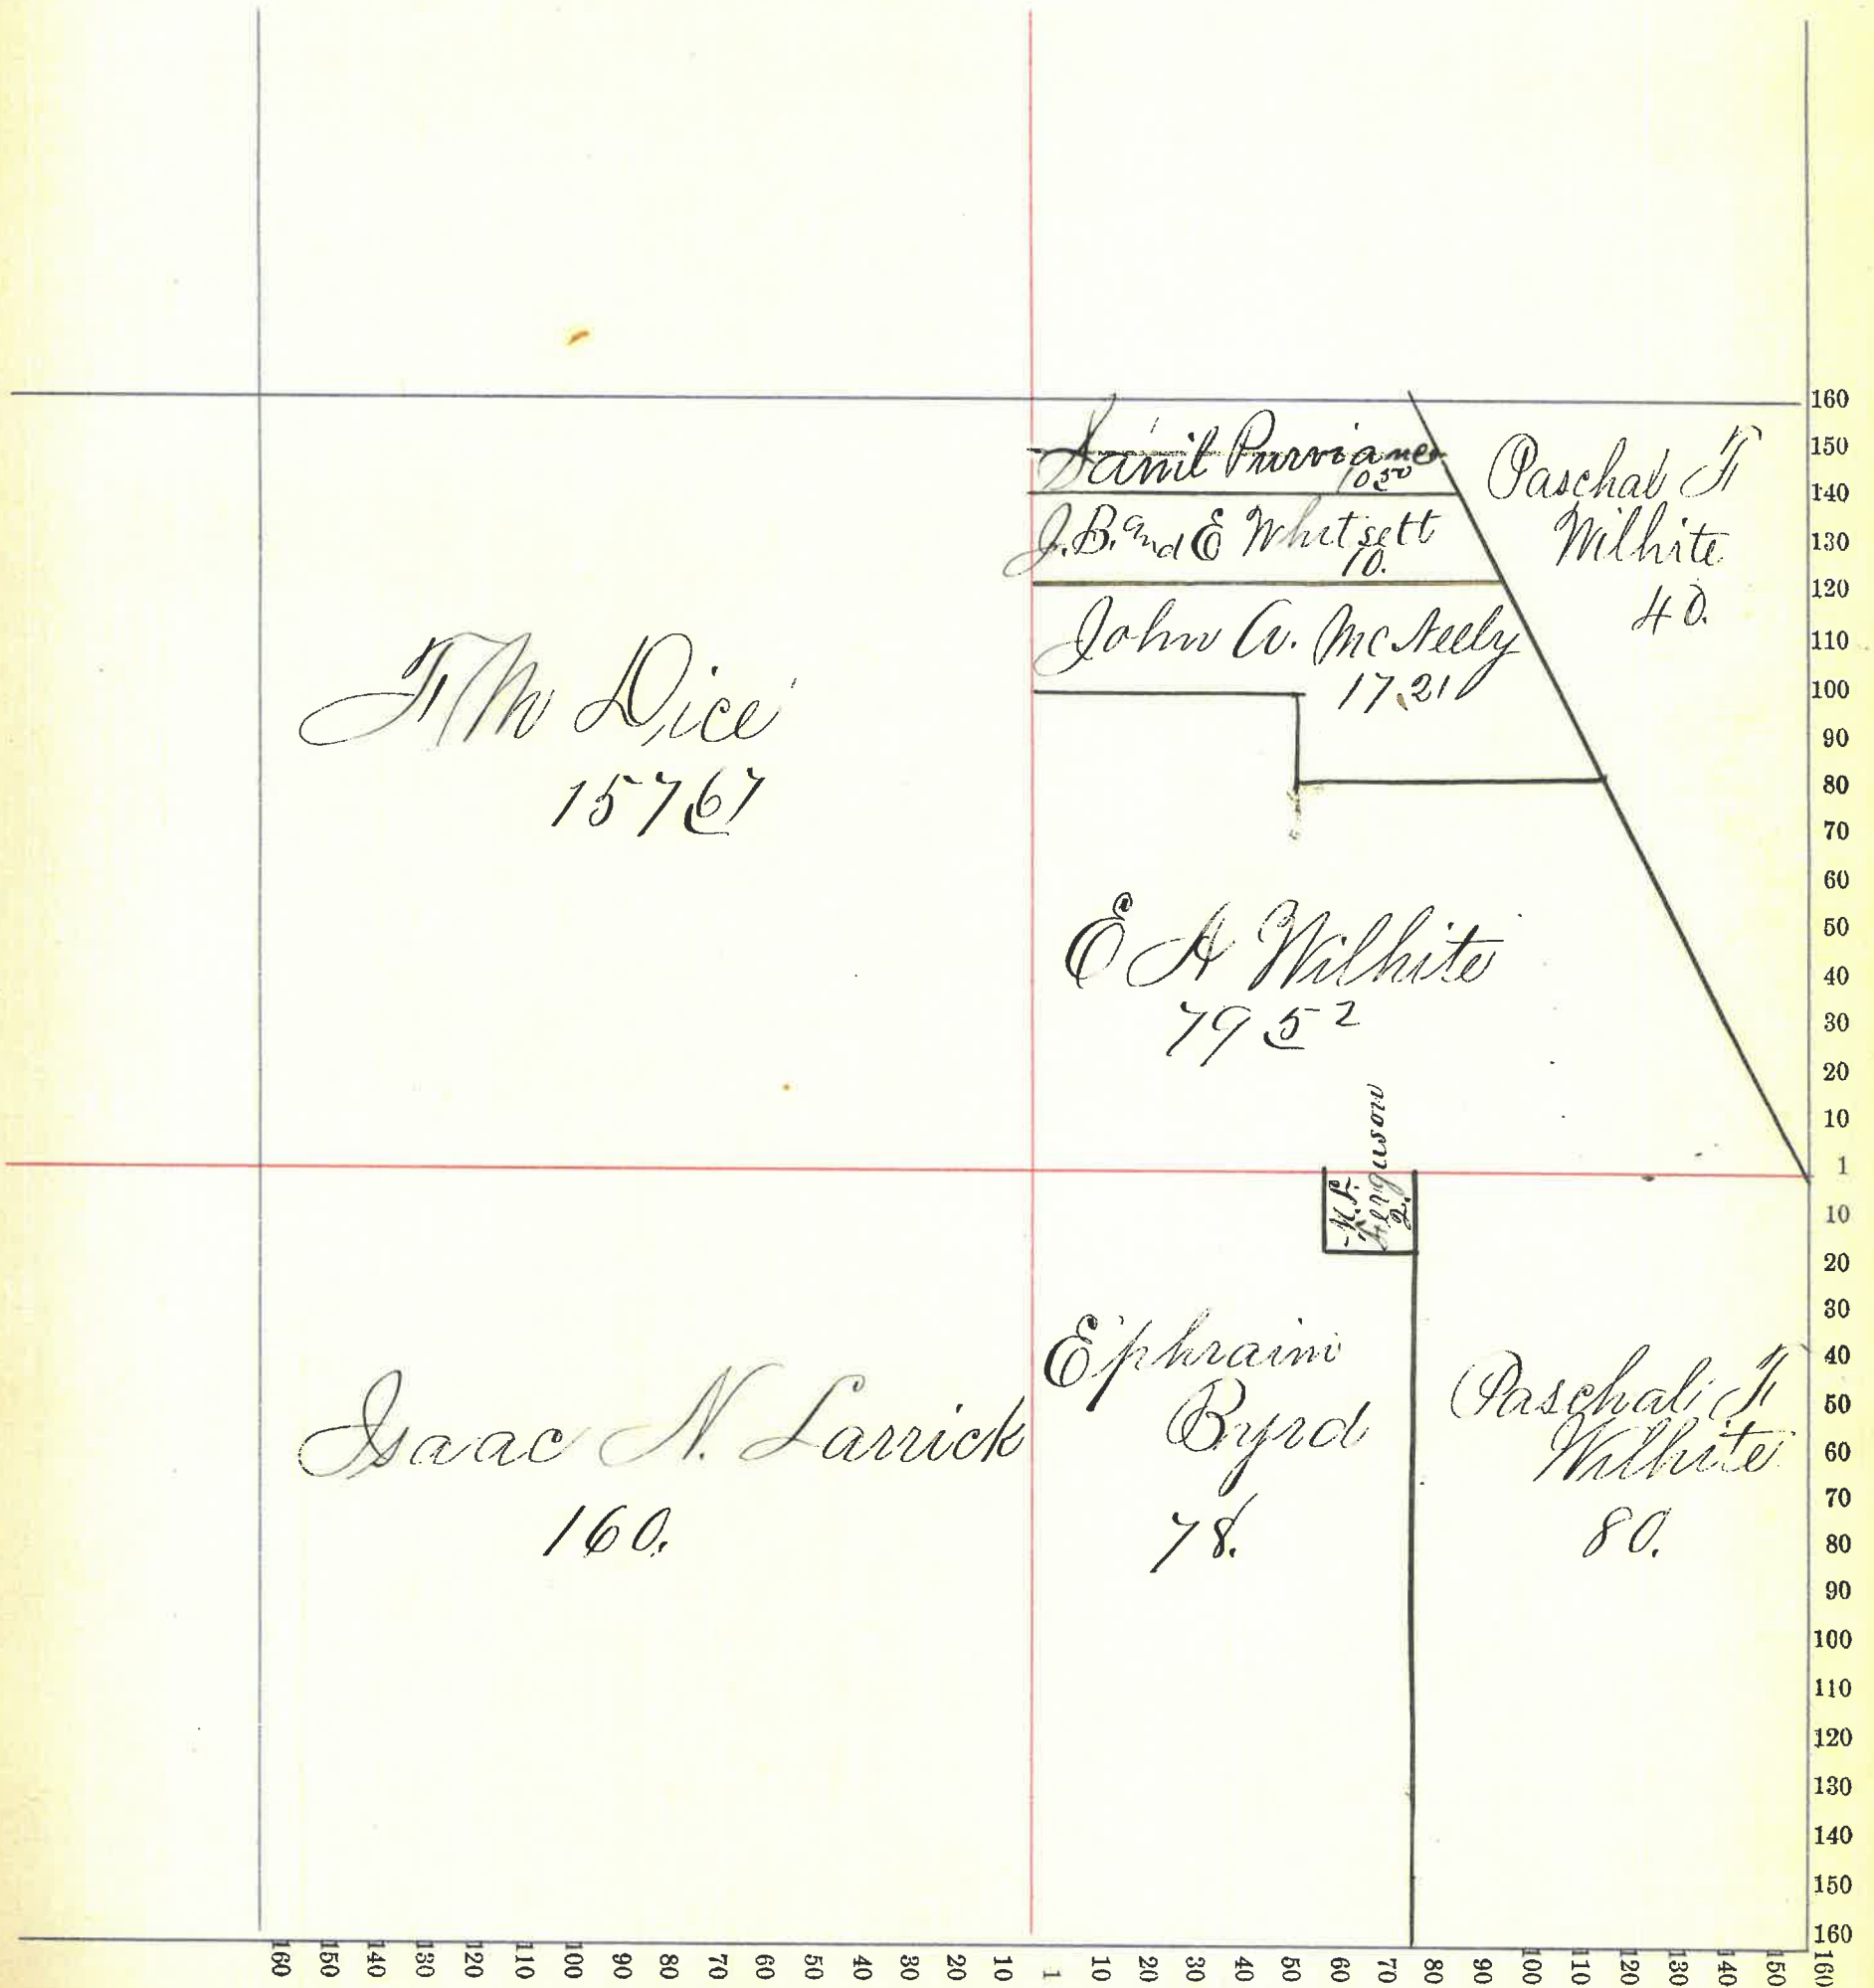 Saml Purviance
10 50
J. B. and E Whitsett
10.
John A. McNeely
17.21
Paschal F
Wilhite
40.
F M Dice
157 67
E A Wilhite
79 52
Ferguson
2.
Isaac N. Larrick
160.
Ephraim
Byrd
78.
Paschal F
Wilhite
80.
160
150
140
130
120
110
100
90
80
70
60
50
40
30
20
10
1
10
20
30
40
50
60
70
80
90
100
110
120
130
140
150
160
160 150 140 130 120 110 100 90 80 70 60 50 40 30 20 10 1 10 20 30 40 50 60 70 80 90 100 110 120 130 140 150 160